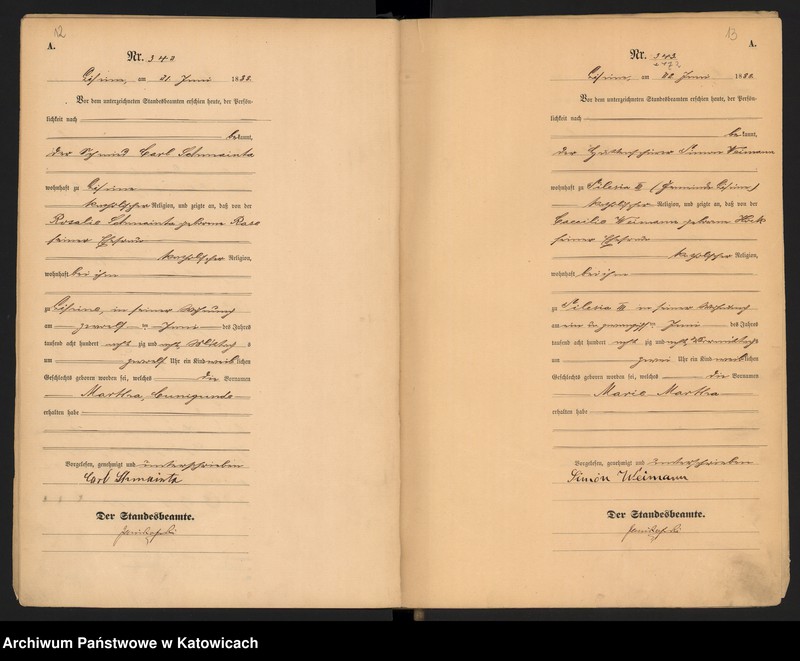 12
A.
Nr. 342
am 21. Juni 1888.
Vor dem unterzeichneten Standesbeamten erschien heute, der Persön-
lichkeit nach
bekannt,
der Schmied Carl Schmainta
wohnhaft zu
katholischer Religion, und zeigte an, daß von der
Rosalie Schmainta geborene
seiner Ehefrau
katholischer Religion,
wohnhaft bei ihm
zu in seiner Wohnung
am zwölften Juni des Jahres
tausend acht hundert achtzig und acht Mittags
um zwölf Uhr ein Kind weiblichen
Geschlechts geboren worden sei, welches die Vornamen
Martha, Cunigunde
erhalten habe
Vorgelesen, genehmigt und unterschrieben
Carl Schmainta
Der Standesbeamte.
13
A.
Nr. 343
am 22. Juni 1888.
Vor dem unterzeichneten Standesbeamten erschien heute, der Persön-
lichkeit nach
bekannt,
der Simon Weimann
wohnhaft zu Silesia III (Gemeinde
katholischer Religion, und zeigte an, daß von der
Caecilie Weimann geborene
seiner Ehefrau
katholischer Religion,
wohnhaft bei ihm
zu Silesia III in seiner Wohnung
am ein und zwanzigsten Juni des Jahres
tausend acht hundert achtzig und acht Vormittags
um zwei Uhr ein Kind weiblichen
Geschlechts geboren worden sei, welches die Vornamen
Marie Martha
erhalten habe
Vorgelesen, genehmigt und unterschrieben
Simon Weimann
Der Standesbeamte.
Archiwum Państwowe w Katowicach